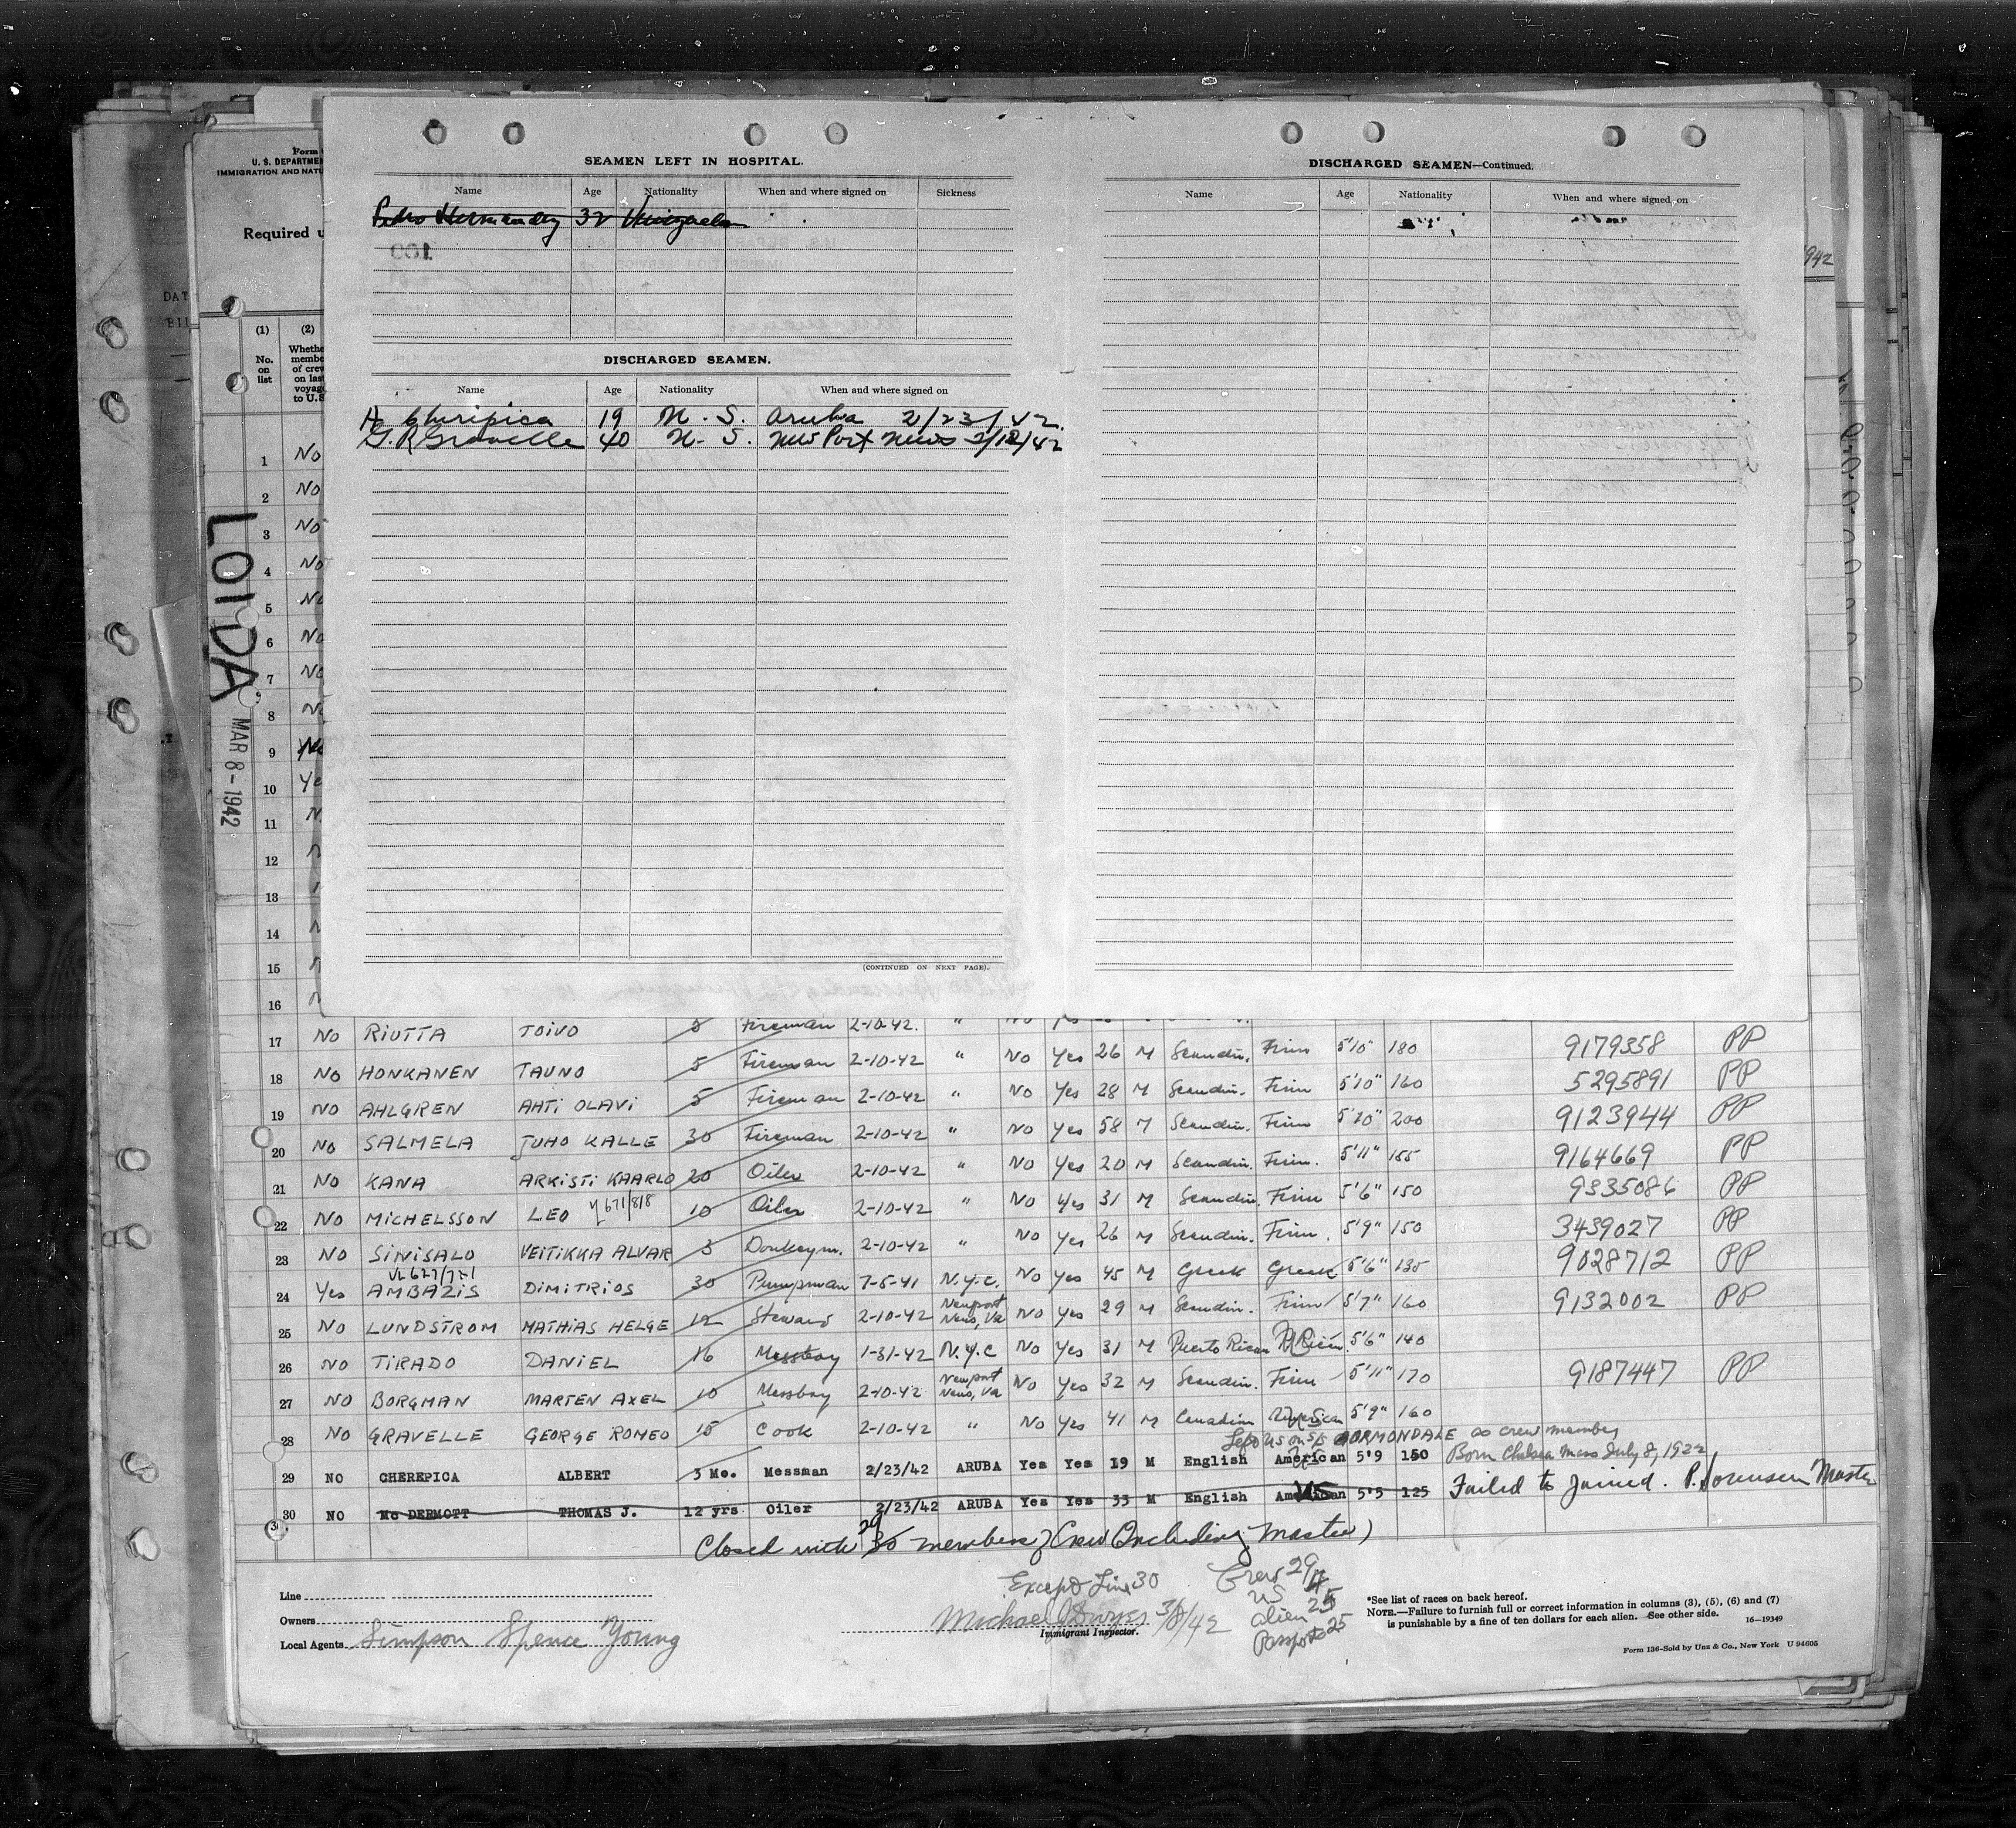 SEAMEN LEFT IN HOSPITAL.
Name Age Nationality When and where signed on Sickness
Pedro Hernandez 32 Venezuela
COL
DISCHARGED SEAMEN.
Name Age Nationality When and where signed on
A Cheripica 19 U.S. Aruba 2/23/42.
G. R Gravelle 40 U.S. New Port News 2/10/42
(CONTINUED ON NEXT PAGE).
DISCHARGED SEAMEN—Continued.
Name Age Nationality When and where signed on
Form
U. S. DEPARTMEN
IMMIGRATION AND NATU
Required u
942
(1) (2)
No. on list
Whethe
membe
of crew
on last
voyage
to U.S
LOIDA
MAR 8-1942
1 No
2 No
3 No
4 No
5 No
6 No
7 No
8 N
9 No
10 Ye
11 N
12
13
14
15
16
17 No RIUTTA TOIVO 5 Fireman 2-10-42. " No Yes
18 No HONKANEN TAUNO 5 Fireman 2-10-42 " No Yes 26 M Scandin. Finn 5'10" 180 9179358 PP
19 No AHLGREN AHTI OLAVI 5 Fireman 2-10-42 " No Yes 28 M Scandin. Finn 5'10" 160 5295891 PP
20 No SALMELA JUHO KALLE 30 Fireman 2-10-42 " No Yes 58 M Scandin. Finn 5'10" 200 9123944 PP
21 No KANA ARKISTI KAARLO 20 Oiler 2-10-42 " No Yes 20 M Scandin. Finn. 5'11" 155 9164669 PP
22 No MICHELSSON LEO 671/818 10 Oiler 2-10-42 " No Yes 31 M Scandin. Finn 5'6" 150 9335086 PP
23 No SINISALO VEITIKKA ALVAR 3 Donkeym. 2-10-42 " No Yes 26 M Scandin. Finn. 5'9" 150 3439027 PP
24 Yes AMBAZIS DIMITRIOS 30 Pumpman 7-5-41 N.Y.C. No Yes 45 M Greek Greek 5'6" 135 9028712 PP
25 No LUNDSTROM MATHIAS HELGE 12 Steward 2-10-42 Newport News, Va No Yes 29 M Scandin. Finn 5'7" 160 9132002 PP
26 No TIRADO DANIEL 16 Messboy 1-31-42 N.Y.C No Yes 31 M Puerto Rican P.Rican. 5'6" 140
27 No BORGMAN MARTEN AXEL 10 Messboy 2-10-42 Newport News, Va No Yes 32 M Scandin. Finn 5'11" 170 9187447 PP
28 No GRAVELLE GEORGE ROMEO 15 Cook 2-10-42 " No Yes 41 M Canadian American 5'9" 160
Left US on S/S ORMONDALE as crew member
29 NO CHEREPICA ALBERT 3 Mo. Messman 2/23/42 ARUBA Yes Yes 19 M English American 5'9 150 Born Chelsea Mass July 8, 1922
30 NO Mc DERMOTT THOMAS J. 12 yrs Oiler 2/23/42 ARUBA Yes Yes 33 M English American US 5'5 125 Failed to Joined. P. Sorensen Master
Closed with 29 30 members Crew (Including Master)
Except Line 30
Crew 29
US 4
alien 25
Passports 25
3/8/42
Immigrant Inspector.
Line
Owners
Local Agents Simpson Spence Young
*See list of races on back hereof.
NOTE.—Failure to furnish full or correct information in columns (3), (5), (6) and (7)
is punishable by a fine of ten dollars for each alien. See other side. 16—19349
Form 136-Sold by Unz & Co., New York U 94605